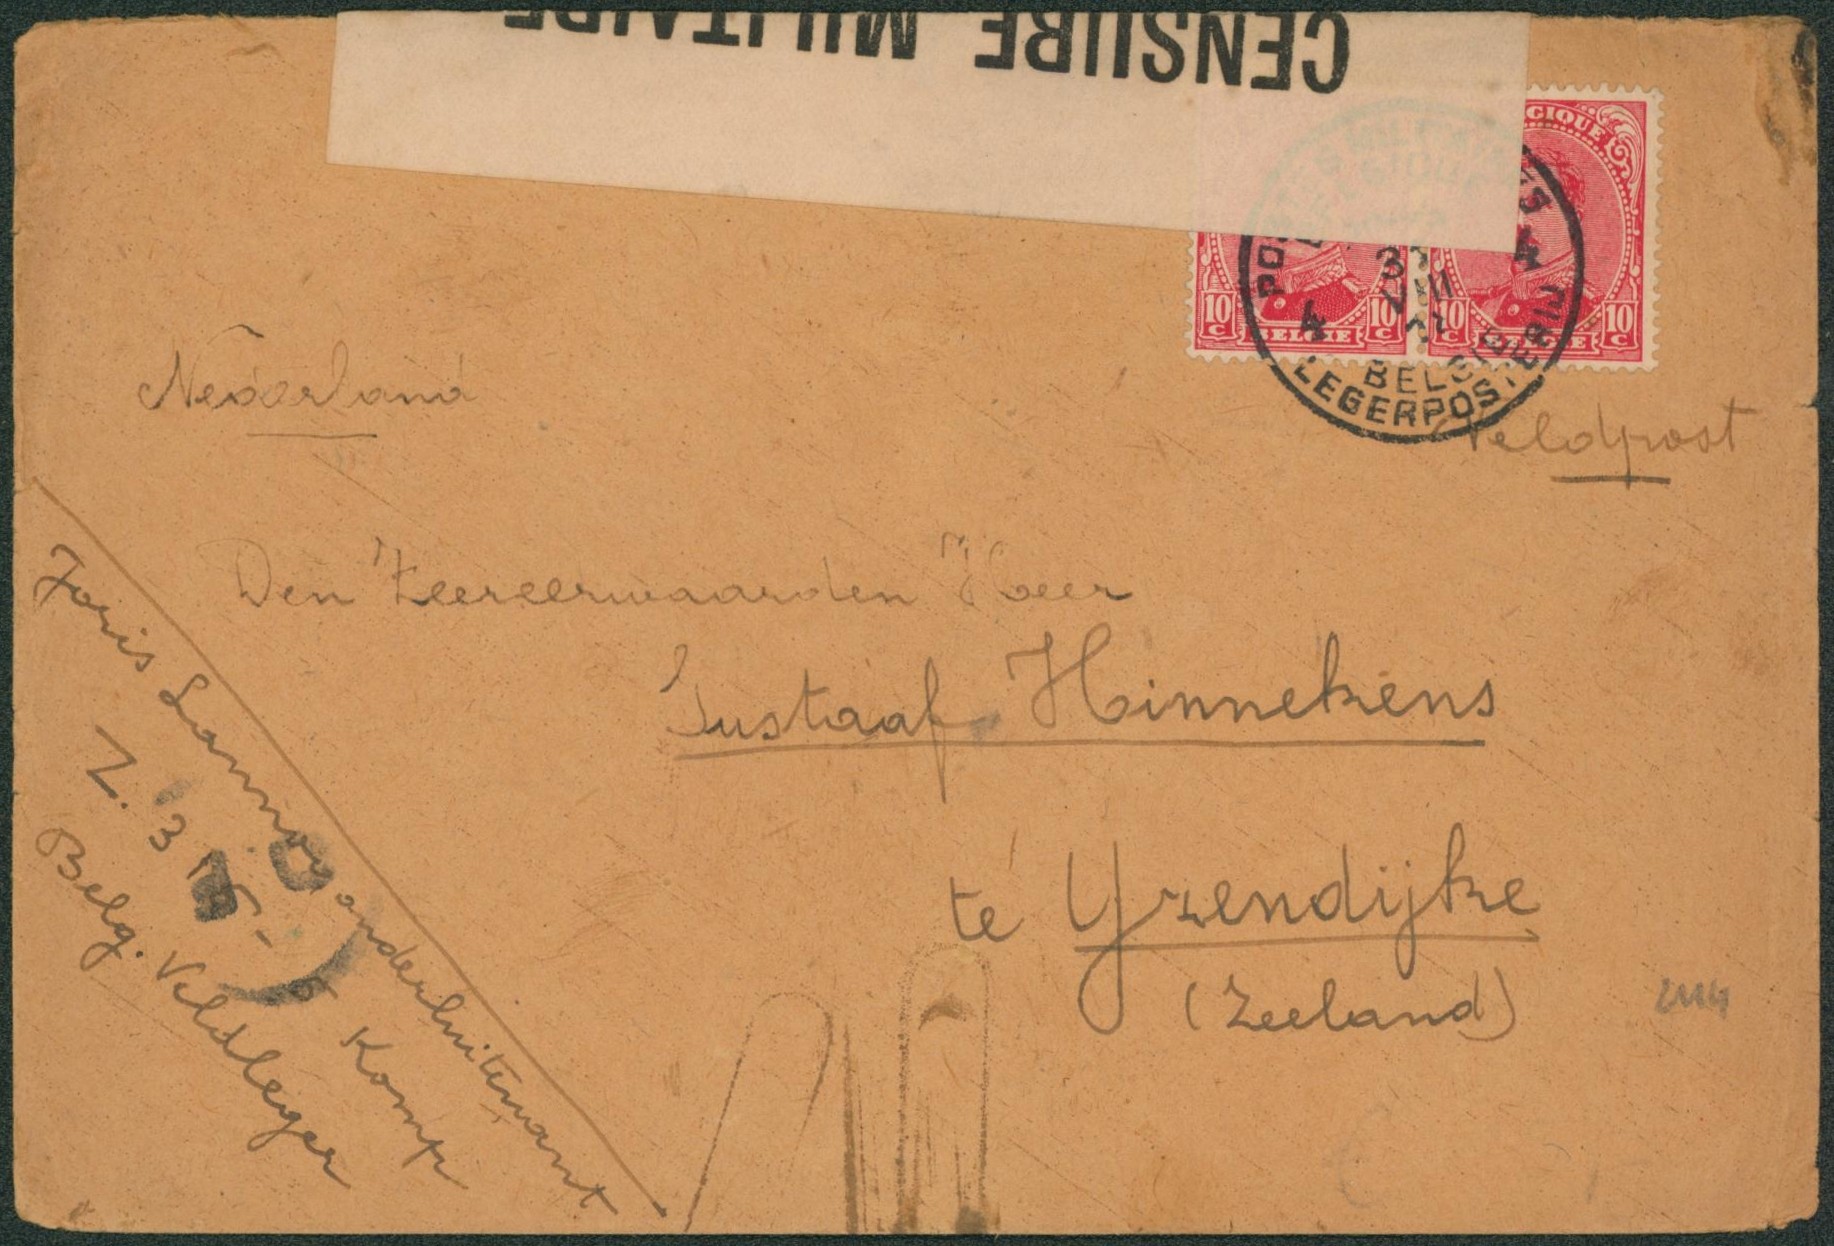 CENSURE MILITAIRE
GIQUE
10 C 10 C
BELGIE
10 10 C
POSTES
4 4
VIII
BELGIE
LEGERPOSTERIJ
Nederland
Veldpost
Den Zeereerwaarden Heer
Gustaaf Hinnekens
te Yzendijke
(Zeeland)
Joris Lannoo onderluitenant
Z. 3 - 6 Komp
Belg. Veldleger